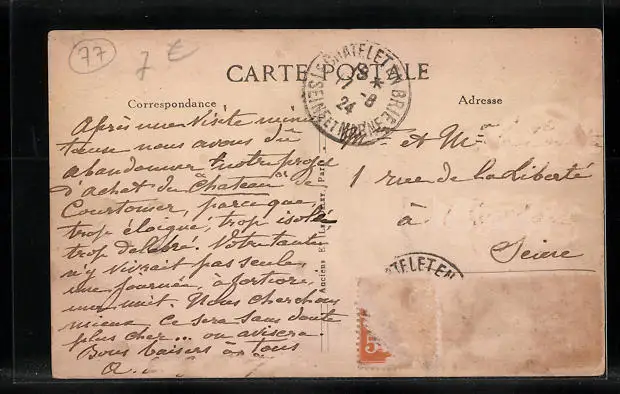 77
7 €
CARTE POSTALE
Correspondance
Adresse
LE CHATELET EN BRIE
SEINE ET MARNE
17 -8
24
Après une visite minu
tieuse nous avons dû
abandonner notre projet
d'achat du "Château" de
Courtomer, parceque
trop éloigné, trop isolé
trop délabré. Votre tante
n'y vivrait pas seule
une journée, à fortiori
une nuit. Nous cherchons
mieux ce sera sans doute
plus cher... on avisera.
Bons baisers à tous
A.
Anciens Et
Paris
et M
1 rue de la Liberté
à
Seine
CHATELET EN
5